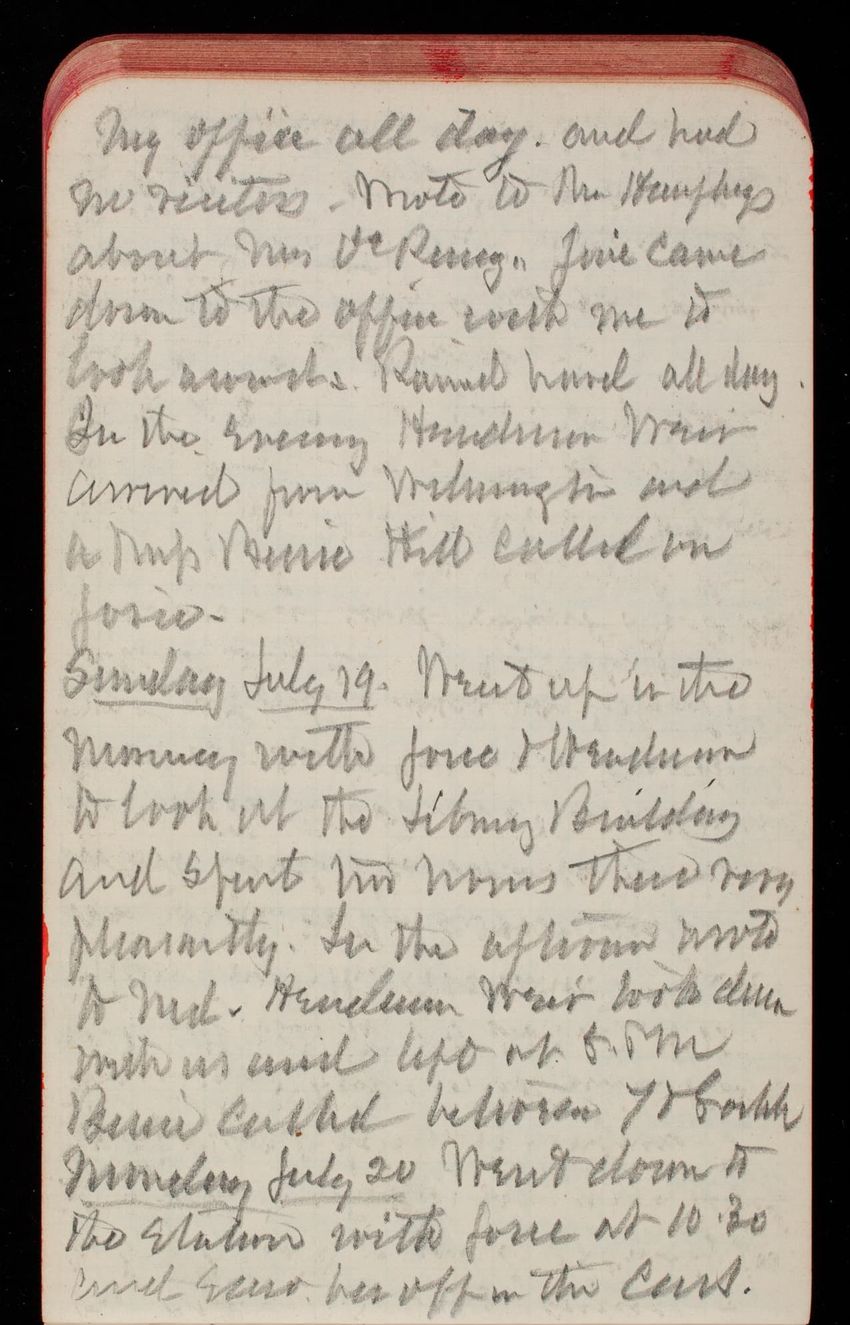 My office all day. and had
no visitors. Wrote to Mr Humphreys
about Mrs Josie came
down to the office with me to
look around. Rained hard all day.
In the evening Henderson Weir
arrived from Wilmington and
a Miss Bessie Hill called on
Josie.
Sunday July 19. Went up in the
morning with Josie & Henderson
to look at the Library Building
and spent two hours there very
pleasantly. In the afternoon wrote
to Ned. Henderson Weir took
with us and left at PM
Bessie called between 7 & 8 oclk
Monday July 20 Went down to
the Station with Josie at 10.30
and saw her off in the Cars.